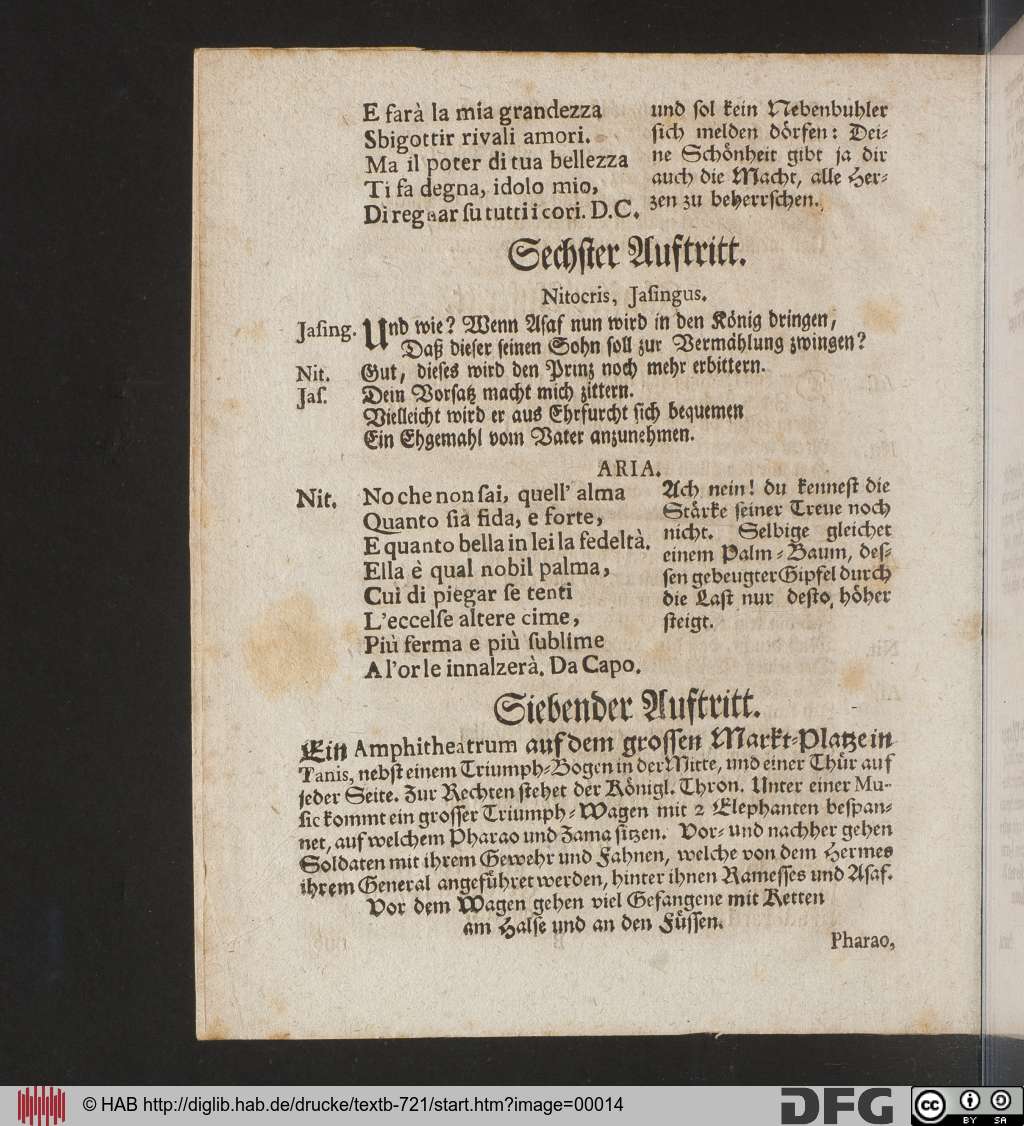 E farà la mia grandezza
Sbigottir rivali amori.
Ma il poter di tua bellezza
Ti fa degna, idolo mio,
Di regnar ſu tutti i cori. D.C.
und ſol kein Nebenbuhler
ſich melden doͤrfen: Dei⸗
ne Schoͤnheit gibt ja dir
auch die Macht, alle Her⸗
zen zu beherrſchen.
Sechſter Auftritt.
Nitocris, Jaſingus.
Jaſing. Und wie? Wenn Aſaf nun wird in den Koͤnig dringen,
Daß dieſer ſeinen Sohn ſoll zur Vermaͤhlung zwingen?
Nit. Gut, dieſes wird den Prinz noch mehr erbittern.
Jaſ. Dein Vorſatz macht mich zittern.
Vielleicht wird er aus Ehrfurcht ſich bequemen
Ein Ehgemahl vom Vater anzunehmen.
ARIA.
Nit. No che non ſai, quell' alma
Quanto ſia fida, e forte,
E quanto bella in lei la fedeltà.
Ella è qual nobil palma,
Cui di piegar ſe tenti
L'eccelſe altere cime,
Più ferma e più ſublime
A l'or le innalzerà. Da Capo.
Ach nein! du kenneſt die
Staͤrke ſeiner Treue noch
nicht. Selbige gleichet
einem Palm⸗Baum, deſ⸗
ſen gebeugter Gipfel durch
die Laſt nur deſto hoͤher
ſteigt.
Siebender Auftritt.
Ein Amphitheatrum auf dem groſſen Markt⸗Platze in
Tanis, nebſt einem Triumph⸗Bogen in der Mitte, und einer Thuͤr auf
jeder Seite. Zur Rechten ſtehet der Koͤnigl. Thron. Unter einer Mu⸗
ſic kommt ein groſſer Triumph⸗Wagen mit 2 Elephanten beſpan⸗
net, auf welchem Pharao und Zama ſitzen. Vor⸗ und nachher gehen
Soldaten mit ihrem Gewehr und Fahnen, welche von dem Hermes
ihrem General angefuͤhret werden, hinter ihnen Rameſſes und Aſaf.
Vor dem Wagen gehen viel Gefangene mit Ketten
am Halſe und an den Fuͤſſen.
Pharao,
© HAB http://diglib.hab.de/drucke/textb-721/start.htm?image=00014
DFG
cc BY SA